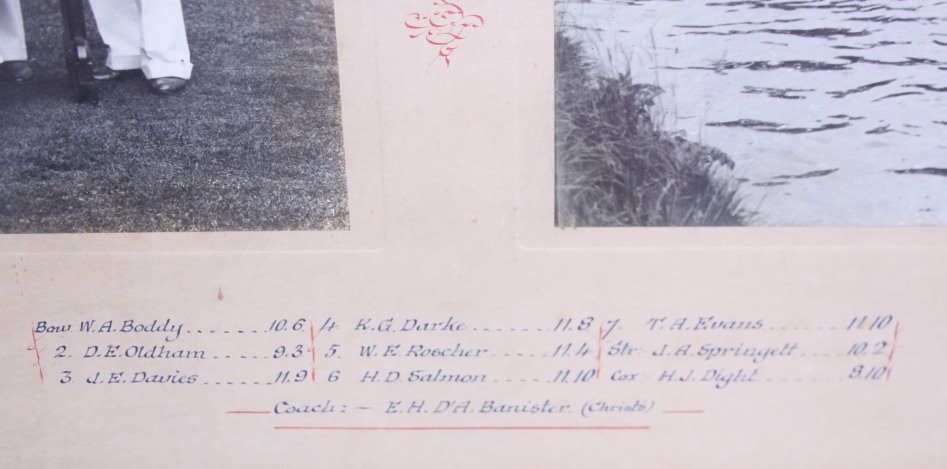 Bow W.A. Boddy ....... 10.6 4. K.G. Darke ....... 11.8 7. T.A. Evans ....... 11.10
2. D.E. Oldham ....... 9.3 5. W.E. Roscher ...... 11.4 Str. J.A. Springett ..... 10.2
3 J.E. Davies ....... 11.9 6 H.D. Salmon ...... 11.10 Cox H.J. Dight ....... 8.10
Coach :- E.H. D'A. Banister. (Christs)